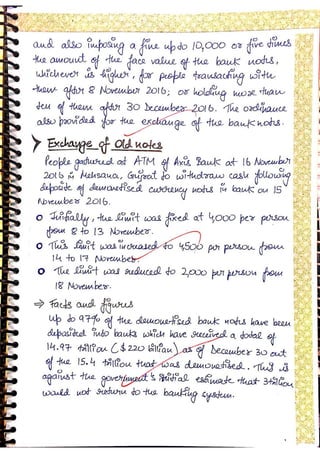 and also imposing a fine upto 10,000 or five times
the amount of the face value of the bank notes,
whichever is higher, for people transacting with
them after 8 November 2016; or holding more than
ten of them after 30 December 2016. The ordinance
also provided for the exchange of the banknotes.
➤ Exchange of Old notes
People gathered at ATM of Axis Bank at 16 November
2016 in Mehsana, Gujrat to withdraw cash following
deposits of demonetised currency notes in bank on 15
November 2016.
o Initially, the limit was fixed at 4,000 per person
from 8 to 13 November.
o This limit was increased to 4500 per person from
14 to 17 November.
o The limit was reduced to 2,000 per person from
18 November.
⇒ Facts and figures
Up to 97% of the demonetised bank notes have been
deposited into banks which have received a total of
14.97 trillion ($220 billion) as of December 30 out
of the 15.4 trillion that was demonetised. This is
against the government's initial estimate that 3 trillion
would not return to the banking system.